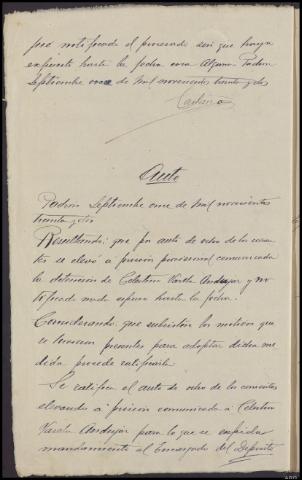 pecó notificado el procesado sin que haya
expuesto hasta la fecha cosa alguna. Padrón
Septiembre once de mil novecientos treinta y dos

Auto
Padrón Septiembre once de mil novecientos
treinta y dos
Resultando: que por auto de ocho de los corrientes
se elevó a prisión provisional comunicada
la detención de Celestino Varela Andujar y no-
tificado nada expuso hasta la fecha.
Considerando: que subsisten los motivos que
se tuvieron presentes para adoptar dicha me-
dida procede ratificarla
Se ratifica el auto de ocho de los corrientes
elevando a prisión comunicada a Celestino
Varela Andujar para lo que se expedirá
mandamiento al Encargado del Depósito